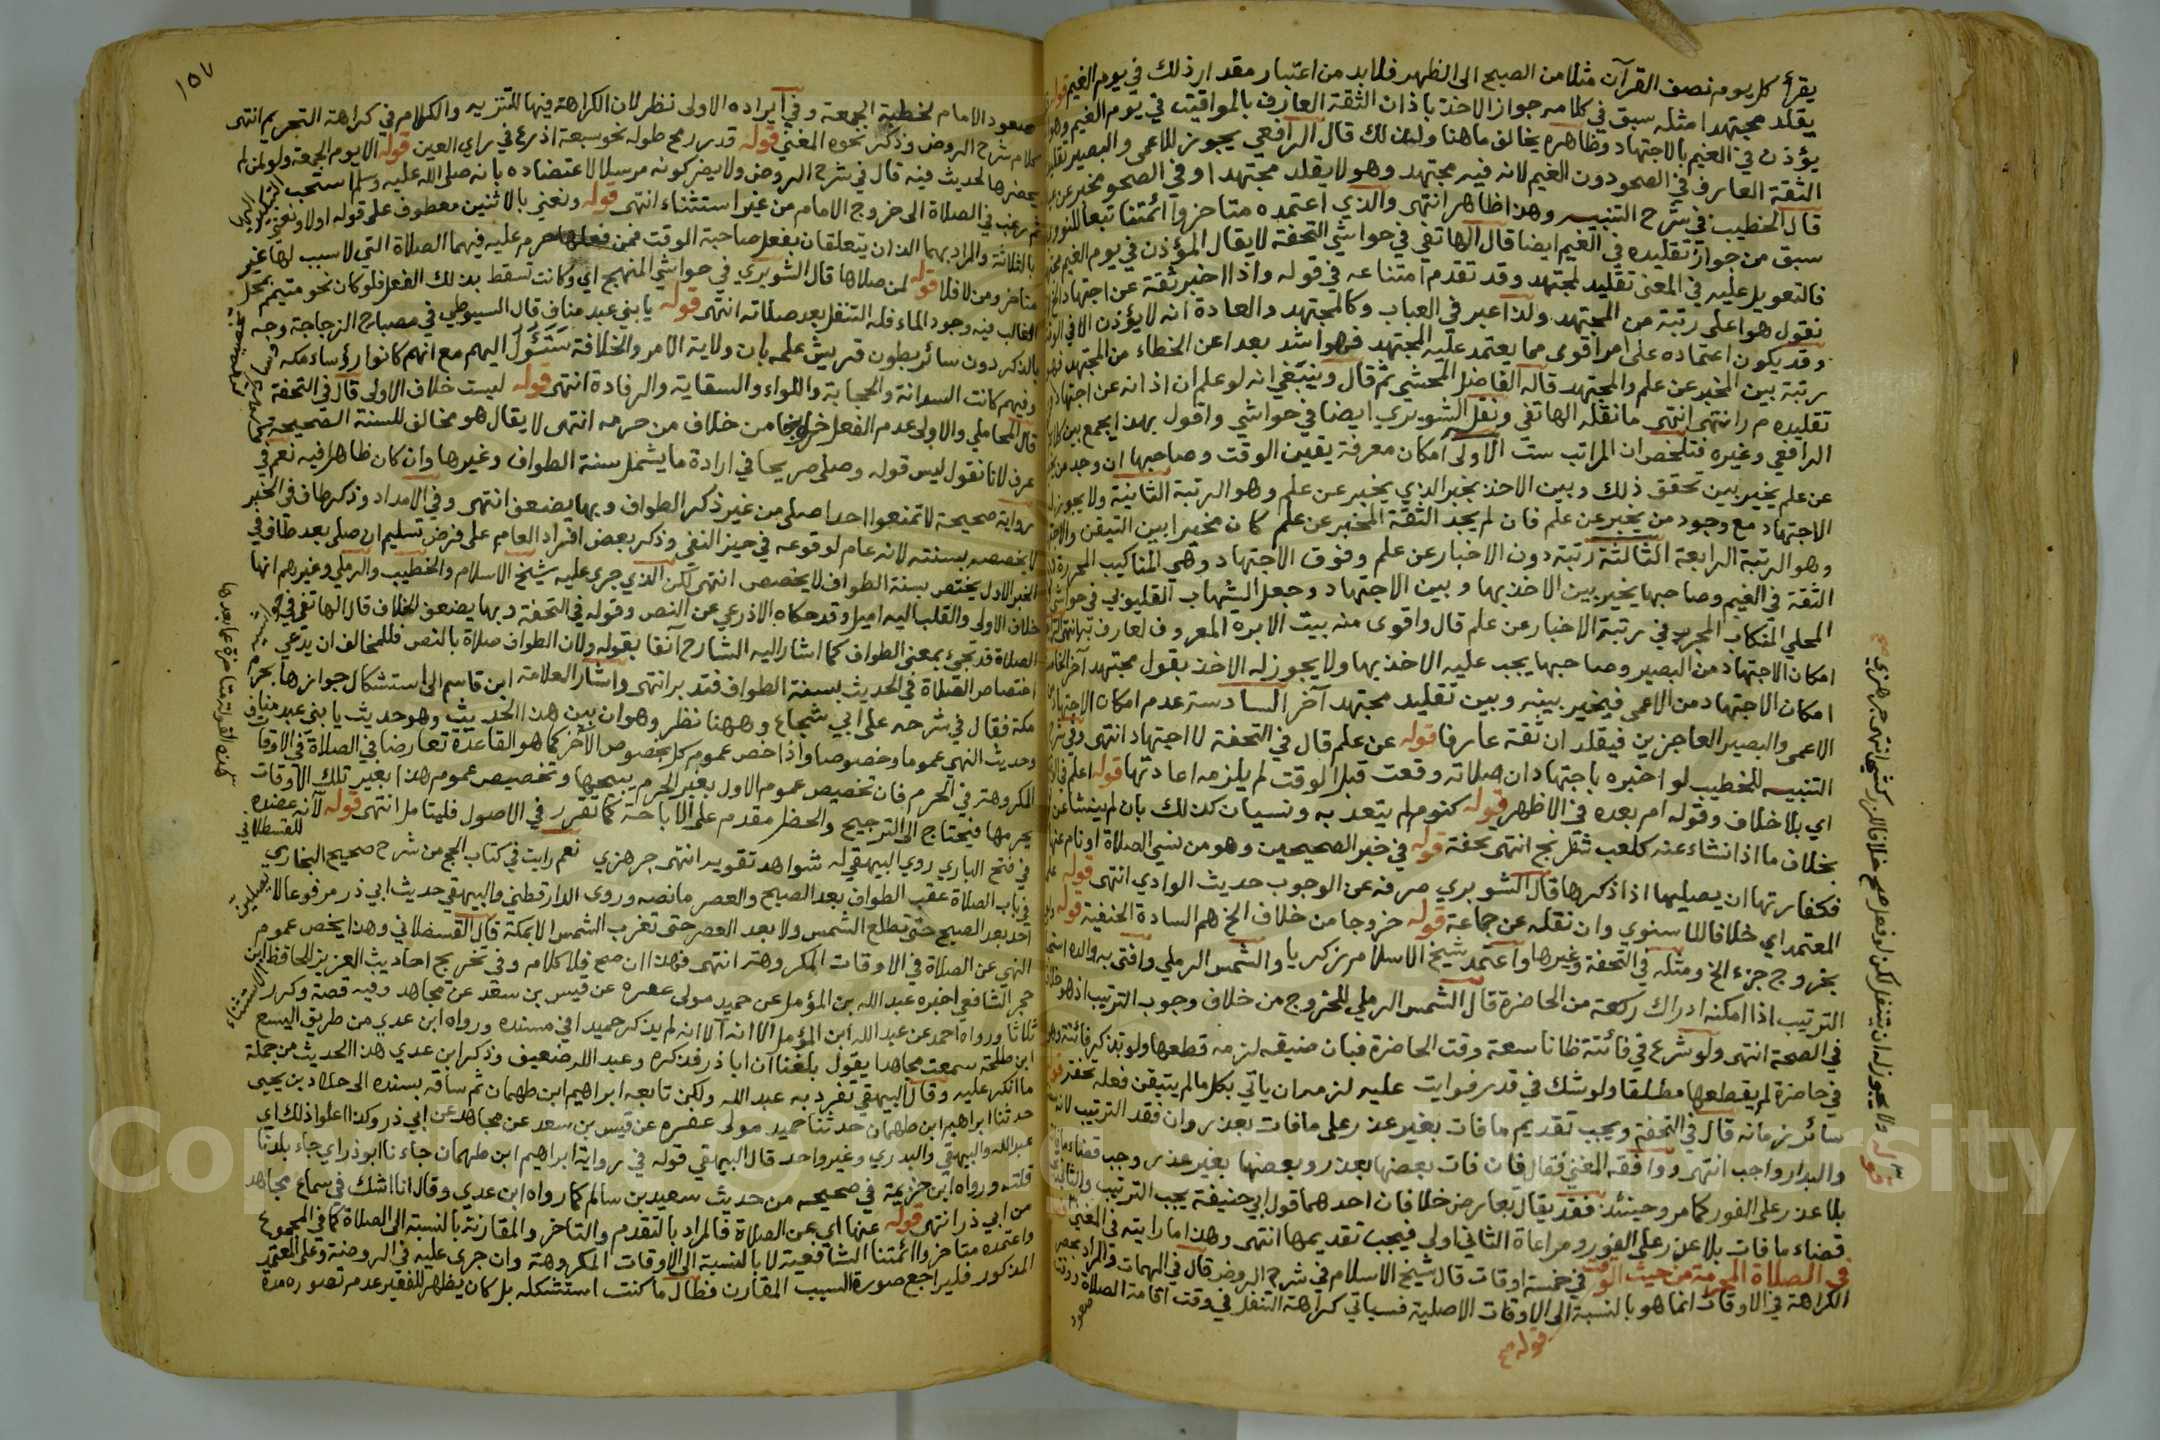 يقرأ كل يوم نصف القرآن مثلا من الصبح الى الظهر فلابد من اعتبار مقدار ذلك في يوم الغيم قوله
يقلد مجتهدا مثله سبق في كلامه جواز الاخذ باذان الثقة العارف بالمواقيت في يوم الغيم وهو
يؤذن في الغيم بالاجتهاد وظاهره يخالف ما هنا ولذلك قال الرافعي يجوز للاعمى والبصير تقليد
الثقة العارف في الصحو دون الغيم لانه فيه مجتهد وهو لا يقلد مجتهدا وفي الصحو مخبر عن
قال الخطيب في شرح التنبيه وهذا ظاهر انتهى والذي اعتمده متاخروا ائمتنا تبعا للنووي
سبق من جواز تقليده في الغيم ايضا قال الهاتفي في حواشي التحفة لا يقال المؤذن في يوم الغيم
فالتعويل عليه في المعنى تقليد لمجتهد وقد تقدم امتناعه في قوله واذا اخبر ثقة عن اجتهاد
نقول هو اعلى رتبة من المجتهد ولذا عبر في العباب وكالمجتهد والعادة انه لا يؤذن الا في الوقت
وقد يكون اعتماده على امر اقوى مما يعتمد عليه المجتهد فهو اشد بعدا عن الخطاء من المجتهد
رتبة بين المخبر عن علم والمجتهد قاله الفاضل المحشي ثم قال وينبغي انه لو علم ان اذانه عن اجتهاد
تقليده م ر انتهى انتهى ما نقله الهاتفي ونقل الشوبري ايضا في حواشي واقول بهذا يجمع بين كلام
الرافعي وغيره فتلخص ان المراتب ست الاولى امكان معرفة يقين الوقت وصاحبها ان وجد من
عن علم يخير بين تحقق ذلك وبين الاخذ بخبر الذي يخبر عن علم وهو الرتبة الثانية ولا يجوز
الاجتهاد مع وجود من يخبر عن علم فان لم يجد الثقة المخبر عن علم كان مخيرا بين التيقن والاجتهاد
وهو الرتبة الرابعة الثالثة رتبة دون الاخبار عن علم وفوق الاجتهاد وهي المناكيب المحررة
الثقة في الغيم وصاحبها يخير بين الاخذ بها وبين الاجتهاد وجعل الشهاب القليوبي في حواشي
المحلي المنكاب المجرب في رتبة الاخبار عن علم قال واقوى منه بيت الابرة المعروف لعارف به انتهى
امكان الاجتهاد من البصير وصاحبها يجب عليه الاخذ بها ولا يجوز له الاخذ بقول مجتهد آخر الخامسة
امكان الاجتهاد من الاعمى فيخير بينه وبين تقليد مجتهد آخر السادسة عدم امكان الاجتهاد
الاعمى والبصير العاجزين فيقلدان ثقة عارفا قوله عن علم قال في التحفة لا اجتهاد انتهى وفي شرح
التنبيه للخطيب لو اخبره باجتهاد ان صلاته وقعت قبل الوقت لم يلزمه اعادتها قوله
اي بلا خلاف وقوله ام بعده في الاظهر قوله كنوم لم يتعد به ونسيان كذلك بان لم ينشأ عن
بخلاف ما اذا نشاء عنه كلعب شطرنج انتهى تحفة قوله في خبر الصحيحين وهو من نسي الصلاة او نام عنها
فكفارتها ان يصليها اذا ذكرها قال الشوبري صرفه عن الوجوب حديث الوادي انتهى قوله على
المعتمد اي خلافا للاسنوي وان نقله عن جماعة قوله خروجا من خلاف الخ هم السادة الحنفية قوله
بخروج جزء الخ ومثله في التحفة وغيرها واعتمد شيخ الاسلام زكريا والشمس الرملي وافتى به والده
الترتيب اذا امكنه ادراك ركعة من الحاضرة قال الشمس الرملي للخروج من خلاف وجوب الترتيب اذ هو
في الصحة انتهى ولو شرع في فائتة ظانا سعة وقت الحاضرة فبان ضيقه لزمه قطعها ولو تذكر فائتة وهو
في حاضرة لم يقطعها مطلقا ولو شك في قدر فوايت عليه لزمه ان ياتي بكل ما لم يتيقن فعله تحفة
سائر زمانه قال في التحفة ويجب تقديم ما فات بغير عذر على ما فات بعذر وان فقد الترتيب لانه
والبدار واجب انتهى ووافقه المغني فقال فان فات بعضها بعذر وبعضها بغير عذر وجب قضاء ما
بلا عذر على الفور كما مر وحينئذ فقد يقال تعارض خلافان احدهما قول ابي حنيفة يجب الترتيب والثاني
قضاء ما فات بلا عذر على الفور ومراعاة الثاني اولى فيجب تقديمها انتهى وهذا ما رايته في المغني
في الصلاة المحرمة من حيث الوقت في خمسة اوقات قال شيخ الاسلام في شرح الروض قال في المهمات والمراد بحصر
الكراهة في الاوقات انما هو بالنسبة الى الاوقات الاصلية فسياتي كراهة التنفل في وقت اقامة الصلاة ووقت
صعود
قوله صح
قوله ولا يجوز له ان يتنفل لكن لو فعل صح خلافا للزركشي انتهى جرهزي صح
١٥٧
صعود الامام لخطبة الجمعة وفي ايراده الاولى نظر لان الكراهة فيها للتنزيه والكلام في كراهة التحريم انتهى
كلام شرح الروض وذكر نحوه المغني قوله قدر رمح طوله نحو سبعة اذرع في راي العين قوله الا يوم الجمعة ولو لمن لم
يحضرها لحديث فيه قال في شرح الروض ولا يضر كونه مرسلا لاعتضاده بانه صلى الله عليه وسلم استحب التبكير اليها
ثم رغب في الصلاة الى خروج الامام من غير استثناء انتهى قوله ونعني بالاثنين معطوف على قوله اولا ونعني
بالثلاثة والمراد بهما اللذان يتعلقان بفعل صاحبة الوقت فمن فعلها حرم عليه فيهما الصلاة التي لا سبب لها غير
متاخر ومن لا فلا قوله لمن صلاها قال الشوبري في حواشي المنهج اي وكانت تسقط بذلك الفعل فلو كان نحو متيمم بمحل
الغالب فيه وجود الماء فله التنفل بعد صلاته انتهى قوله يا بني عبد مناف قال السيوطي في مصباح الزجاجة وجه تخصيصهم
بالذكر دون سائر بطون قريش علمه بان ولاية الامر والخلافة ستؤل اليهم مع انهم كانوا رؤساء مكة وساداتهم
وفيهم كانت السدانة والحجابة واللواء والسقاية والرفادة انتهى قوله ليست خلاف الاولى قال في التحفة
قال المحاملي والاولى عدم الفعل خروجا من خلاف من حرمه انتهى لا يقال هو مخالف للسنة الصحيحة كما
عرف لانا نقول ليس قوله وصلى صريحا في ارادة ما يشمل سنة الطواف وغيرها وان كان ظاهرا فيه نعم في
رواية صحيحة لا تمنعوا احدا صلى من غير ذكر الطواف وبها يضعف انتهى وفي الامداد وذكر طاف في الخبر
لا يخصصه بسنته لانه عام لوقوعه في حيز النفي وذكر بعض افراد العام على فرض تسليم ان صلى بعد طاف في
الخبر الاول يختص بسنة الطواف لا يخصص انتهى لكن الذي جرى عليه شيخ الاسلام والخطيب والرملي وغيرهم انها
خلاف الاولى والقلب اليه اميل وقد حكاه الاذرعي عن النص وقوله في التحفة وبها يضعف الخلاف قال الهاتفي في حواشيه
الصلاة قد تجئ بمعنى الطواف كما اشار اليه الشارح آنفا بقوله ولان الطواف صلاة بالنص فللمخالف ان يدعي
اختصاص الصلاة في الحديث بسنة الطواف فتدبر انتهى واشار العلامة ابن قاسم الى استشكال جوازها بحرم
مكة فقال في شرحه على ابي شجاع وههنا نظر وهو ان بين هذا الحديث وهو حديث يا بني عبد مناف
وحديث النهي عموما وخصوصا واذا خص عموم كل بخصوص الآخر كما هو القاعدة تعارضا في الصلاة في الاوقات
المكروهة في الحرم فان تخصيص عموم الاول بغير الحرم يبيحها وتخصيص عموم هذا بغير تلك الاوقات
يحرمها فيحتاج الى الترجيح والحظر مقدم على الاباحة كما تقرر في الاصول فليتامل انتهى قوله لانه عضده
في فتح الباري روي البيهقي له شواهد تقويه انتهى جرهزي نعم رايت في كتاب الحج من شرح صحيح البخاري للقسطلاني
في باب الصلاة عقب الطواف بعد الصبح والعصر ما نصه وروى الدارقطني والبيهقي حديث ابي ذر مرفوعا لا يصلين
احد بعد الصبح حتى تطلع الشمس ولا بعد العصر حتى تغرب الشمس الا بمكة قال القسطلاني وهذا يخص عموم
النهي عن الصلاة في الاوقات المكروهة انتهى فهذا ان صح فلا كلام وفي تخريج احاديث العزيز للحافظ ابن
حجر الشافعي اخبره عبد الله بن المؤمل عن حميد مولى عفرة عن قيس بن سعد عن مجاهد وفيه قصة وكرر الاستثناء
ثلاثا ورواه احمد عن عبد الله ابن المؤمل الا انه لم يذكر حميدا في مسنده ورواه ابن عدي من طريق اليسع
ابن طلحة سمعت مجاهدا يقول بلغنا ان ابا ذر فذكره وعبد الله ضعيف وذكر ابن عدي هذا الحديث من جملة
ما انكر عليه وقال البيهقي تفرد به عبد الله ولكن تابعه ابراهيم ابن طهمان ثم ساقه بسنده الى خلاد بن يحيى
حدثنا ابراهيم ابن طهمان حدثنا حميد مولى عفرة عن قيس بن سعد عن مجاهد عن ابي ذر وكذا اعلوا ذلك اي
عبد الله والبيهقي والبدري وغير واحد قال البيهقي قوله في رواية ابراهيم ابن طهمان جاءنا ابو ذر اي جاء بلدنا
قلت ورواه ابن خزيمة في صحيحه من حديث سعيد بن سالم كما رواه ابن عدي وقال انا اشك في سماع مجاهد
من ابي ذر انتهى قوله عنها اي عن الصلاة فالمراد بالتقدم والتاخر والمقارنة بالنسبة الى الصلاة كما في المجموع
واعتمده متاخروا ائمتنا الشافعية لا بالنسبة الى الاوقات المكروهة وان جرى عليه في الروضة وعلى المعتمد
المذكور فليراجع صورة السبب المقارن فطال ما كنت استشكله بل كان يظهر للفقير عدم تصوره مدة
هذه القولة متاخرة عما بعدها